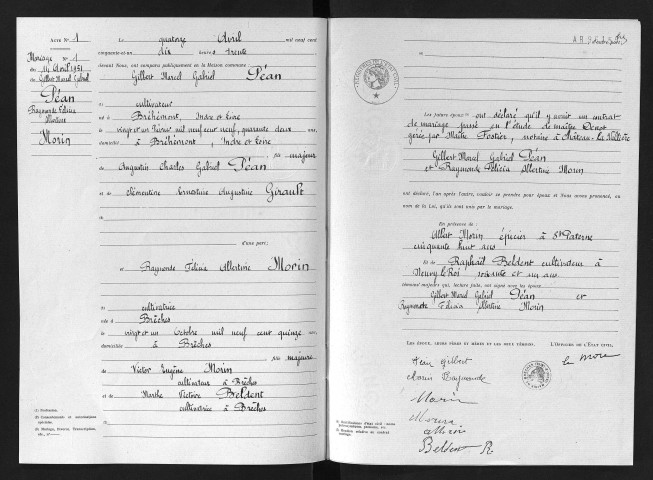 Acte N° 1
Mariage N° 1
du 14 Avril 1951
de Gilbert Marcel Gabriel
Péan
Raymonde Félicia
Albertine
Morin
(1) Profession.
Le quatorze Avril mil neuf cent
cinquante-et-un dix heures trente
devant Nous, ont comparu publiquement en la Maison commune :
Gilbert Marcel Gabriel Péan
cultivateur
né à Bréhémont, Indre et Loire
le vingt et un mil neuf cent neuf, quarante deux ans,
domicilié à Bréhémont, Indre et Loire
fils majeur
de Augustin Charles Gabriel Péan
et de Clémentine Ernestine Augustine Girault
d'une part;
et Raymonde Félicia Albertine Morin
cultivatrice
née à Brèches
le vingt et un Octobre mil neuf cent quinze
domiciliée à Brèches
fille majeure
de Victor Eugène Morin
cultivateur à Brèches
et de Marthe Victoire Beldent
cultivatrice à Brèches
Les futurs époux ont déclaré qu'il y avait un contrat
de mariage passé en l'étude de maître
gérée par Maître Fortier, notaire à Château-La-Vallière
Gilbert Marcel Gabriel Péan
et Raymonde Félicia Albertine Morin
ont déclaré, l'un après l'autre, vouloir se prendre pour époux et Nous avons prononcé, au
nom de la Loi, qu'ils sont unis par le mariage.
En présence de :
Albert Morin épicier à St Paterne
cinquante huit ans
Et de Raphaël Beldent cultivateur à
Neuvy-le-Roi, soixante et un ans
témoins majeurs qui, lecture faite, ont signé avec les époux
Gilbert Marcel Gabriel Péan et
Raymonde Félicia Albertine Morin
LES ÉPOUX, LEURS PÈRES ET MÈRES ET LES DEUX TÉMOINS. L'OFFICIER DE L'ÉTAT CIVIL,
Péan Gilbert
Morin Raymonde
Morin
Beldent R